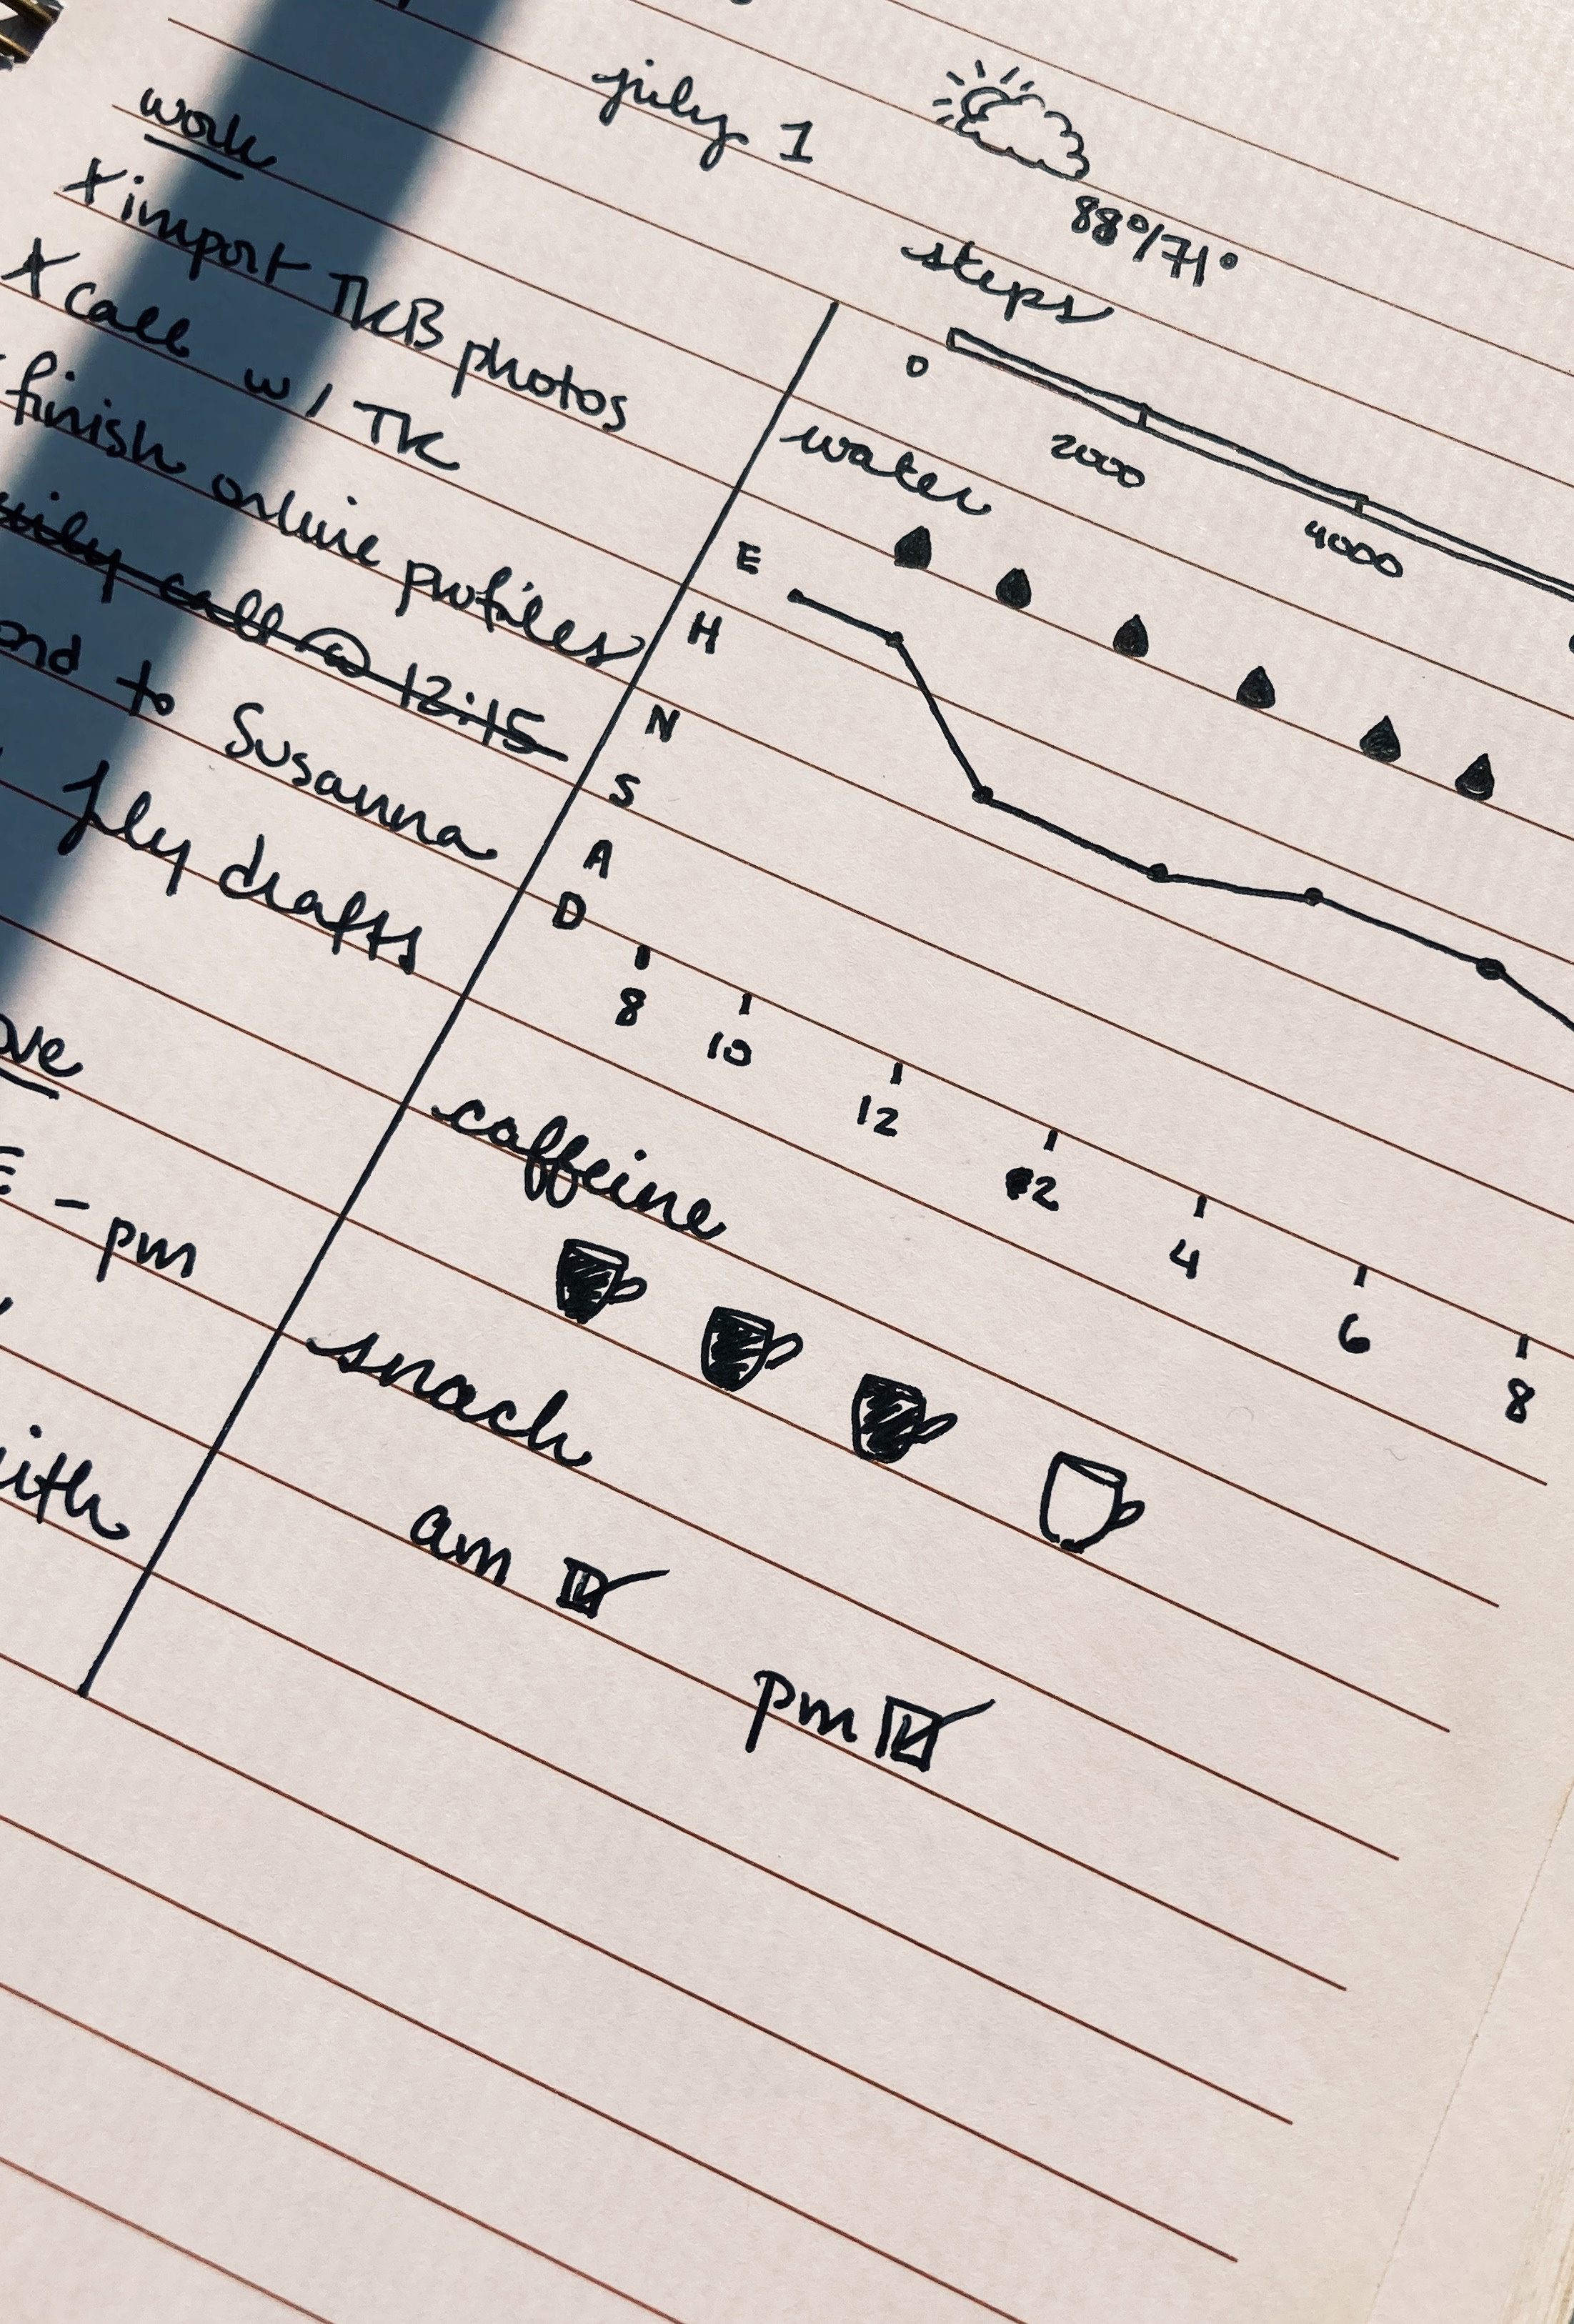 july 1
88°/71°
work
x import TKB photos
x call w/ TK
finish online profiles
call @ 12:15
to Susanna
fly drafts
- pm
steps
0 2000 4000
water
E
H
N
S
A
D
8 10 12 2 4 6 8
caffeine
snack
am
pm